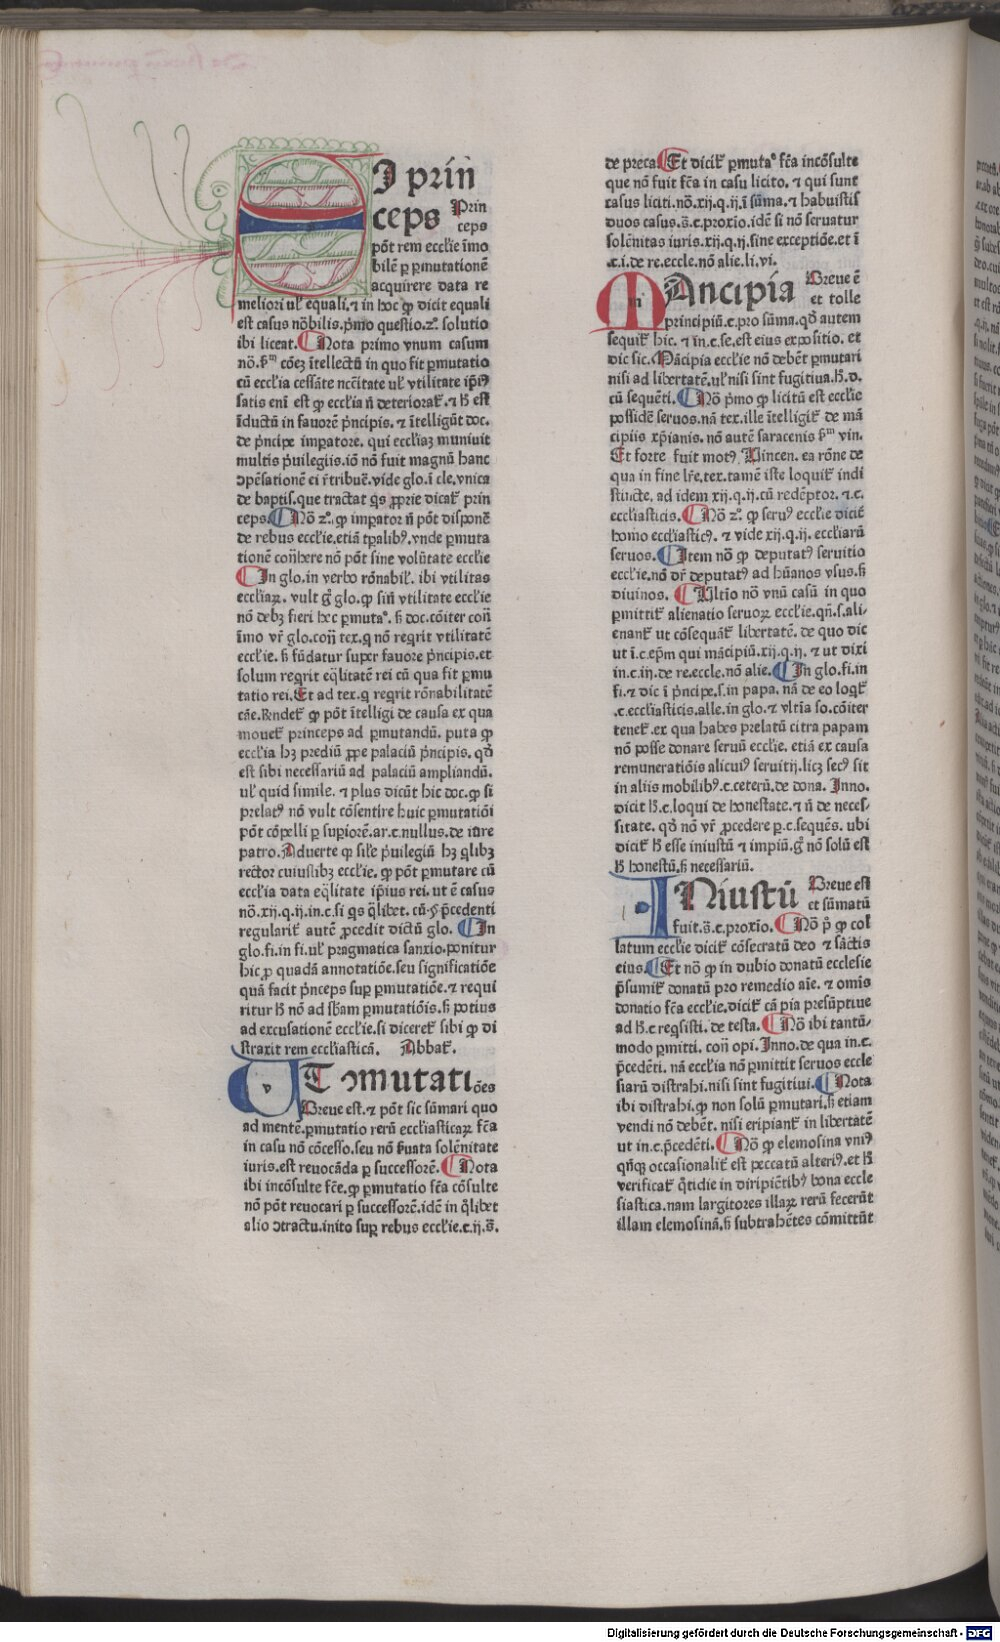 SI prin
ceps Prin
ceps
põt rem eccl'ie īmo
bilē ꝑ ꝑmutationē
acquirere data re
meliori ul' equali.⁊ in hoc ꝙ dicit equali
est casus nōbilis.p̄mo questio.z°. solutio
ibi liceat. Nota primo vnum casum
nō.ẜm cōeꝫ ītellectū in quo fit ꝑmutatio
cū eccl'ia cessāte ncc̄itate ul' vtilitate ip̄iꝰ
satis enī est ꝙ eccl'ia ñ deterioraꝷ.⁊ ꝧ est
īductū in fauorē p̄ncipis.⁊ ītelligūt doc.
de p̄ncipe impatore. qui eccl'iaꝫ muniuit
multis p̄uilegiis.iō nō fuit magnū hanc
ꝯpēsationē ei r̄tribuē.vide glo.ī cle.vnica
de baptis.que tractat qs ꝓprie dicaꝷ prin
ceps. Nō z°. ꝙ impator ñ põt disponē
de rebus eccl'ie.etiā tꝑalibꝰ.vnde ꝑmuta
tionē con̄here nō põt sine volūtate eccl'ie
In glo.in verbo rōnabil'. ibi vtilitas
eccl'iaꝝ. vult gͦ glo.ꝙ sin̄ vtilitate eccl'ie
nō debꝫ fieri hec ꝑmutaº. ẜ doc.cōiter con̄
īmo vr̄ glo.con̄ tex.q nō reqrit vtilitatē
eccl'ie. ẜ fūdatur super fauore p̄ncipis.et
solum reqrit eq̄litatē rei cū qua fit ꝑmu
tatio rei. Et ad tex.q reqrit rōnabilitatē
cāe.Rn̄deꝷ ꝙ põt ītelligi de causa ex qua
moueꝷ princeps ad ꝑmutandū. puta ꝙ
eccl'ia hꝫ prediū ꝓpe palaciū p̄ncipis. qð
est sibi necessariū ad palaciū ampliandū.
ul' quid simile. ⁊ plus dicūt hic doc.ꝙ si
prelatꝰ nō vult cōsentire huic ꝑmutatiōi
põt cōpelli ꝑ supiorē.ar.c.nullus.de iure
patro. Aduerte ꝙ sil'e p̄uilegiū hꝫ ql̄ibꝫ
rector cuiuslibꝫ eccl'ie. ꝙ põt ꝑmutare cū
eccl'ia data eq̄litate ip̄ius rei. ut ē casus
nō.xij.q.ij.in c.si qs q̄libet. cū.§.p̄cedenti
regulariꝷ autē ꝓcedit dictū glo. In
glo.fi.in fi.ul' pragmatica sanxio.ponitur
hic ꝓ quadā annotatiōe.seu significatiōe
quā facit p̄nceps sup ꝑmutatiōe.⁊ requi
ritur ꝧ nō ad sb̄am ꝑmutatiōis.ẜ potius
ad excusationē eccl'ie.si dicereꝷ sibi ꝙ di
straxit rem eccl'iasticā. Abbaꝷ.
UT ꝯmutatiōes
Breue est.⁊ põt sic sūmari quo
ad mentē.ꝑmutatio rerū eccl'iasticaꝝ fc̄a
in casu nō cōcesso.seu nō ẜuata solēnitate
iuris.est reuocāda ꝑ successorē. Nota
ibi incōsulte fc̄e.ꝙ ꝑmutatio fc̄a cōsulte
nō põt reuocari ꝑ successorē.idē in q̄libet
alio ꝯtractu.inito sup rebus eccl'ie.c.ij.s̄.
de preca. Et diciꝷ ꝑmutaº fc̄a incōsulte
que nō fuit fc̄a in casu licito. ⁊ qui sunt
casus liciti.nō.xij.q.ij.ī sūma.⁊ habuistis
duos casus.s̄.c.proxīo.idē si nō seruatur
solēnitas iuris.xij.q.ij.sine exceptiōe.et ī
.c.i.de re.eccle.nō alie.li.vi.
MAncipia Breue ē
et tolle
principiū.c.pro sūma.qð autem
sequiꝷ hic. ⁊ in.c.se.est eius expositio. et
dic sic. Mācipia eccl'ie nō debēt ꝑmutari
nisi ad libertatē.ul' nisi sint fugitiua.h.d.
cū sequēti. Nō p̄mo ꝙ licitū est eccl'ie
possidē seruos.nā tex.ille ītelligiꝷ de mā
cipiis xp̄ianis. nō autē saracenis ẜm vin.
Et forte fuit motꝰ Vincen. ea rōne de
qua in fine lr̄e.tex.tamē iste loquiꝷ indi
stincte. ad idem xij.q.ij.cū redēptor. ⁊.c.
eccl'iasticis. Nō z°. ꝙ seruꝰ eccl'ie diciꝷ
homo eccl'iasticꝰ. ⁊ vide xij.q.ij. eccl'iarū
seruos. Item nō ꝙ deputatꝰ seruitio
eccl'ie.nō dr̄ deputatꝰ ad hūanos vsus.ẜ
diuinos. Ultīo nō vnū casū in quo
ꝑmittiꝷ alienatio seruoꝝ eccl'ie.qn̄.s.ali-
enanꝷ ut cōsequāꝷ libertatē. de quo dic
ut ī.c.ep̄m qui mācipiū.xij.q.ij. ⁊ ut dixi
in.c.iij.de re.eccle.nō alie. In glo.fi.in
fi.⁊ dic ī p̄ncipe.s.in papa. nā de eo loqꝷ
.c.eccl'iasticis.alle.in glo.⁊ vltīa so.cōiter
teneꝷ.ex qua habes prelatū citra papam
nō posse donare seruū eccl'ie. etiā ex causa
remuneratiōis alicuiꝰ seruitij.licꝫ secꝰ sit
in aliis mobilibꝰ.c.ceterū.de dona. Inno.
dicit ꝧ.c.loqui de honestate.⁊ ñ de neces-
sitate. qð nō vr̄ ꝓcedere ꝑ.c.sequēs. ubi
diciꝷ ꝧ esse iniustū ⁊ impiū.gͦ nō solū est
ꝧ honestū.ẜ necessariū.
INiustū Breue est
et sūmatū
fuit.s̄.c.proxīo. Nō p̊ ꝙ col
latum eccl'ie diciꝷ cōsecratū deo ⁊ sāctis
eius. Et nō ꝙ in dubio donatū ecclesie
p̄sumiꝷ donatū pro remedio aīe. ⁊ omīs
donatio fc̄a eccl'ie.diciꝷ cā pia presūptiue
ad ꝧ.c reqsisti. de testa. Nō ibi tantū-
modo ꝑmitti. con̄ opi. Inno.de qua in.c.
p̄cedēti. nā eccl'ia nō ꝑmittit seruos eccle
siarū distrahi.nisi sint fugitiui. Nota
ibi distrahi.ꝙ non solū ꝑmutari.ẜ etiam
vendi nō debēt. nisi eripianꝷ in libertatē
ut in.c.p̄cedēti. Nō ꝙ elemosina vniꝰ
qn̄qꝫ occasionaliꝷ est peccatū alteriꝰ.et ꝧ
verificaꝷ q̄tidie in diripiētibꝰ bona eccle
siastica.nam largitores illaꝝ rerū fecerūt
illam elemosinā.ẜ subtrahētes cōmittūt
Digitalisierung gefördert durch die Deutsche Forschungsgemeinschaft - DFG